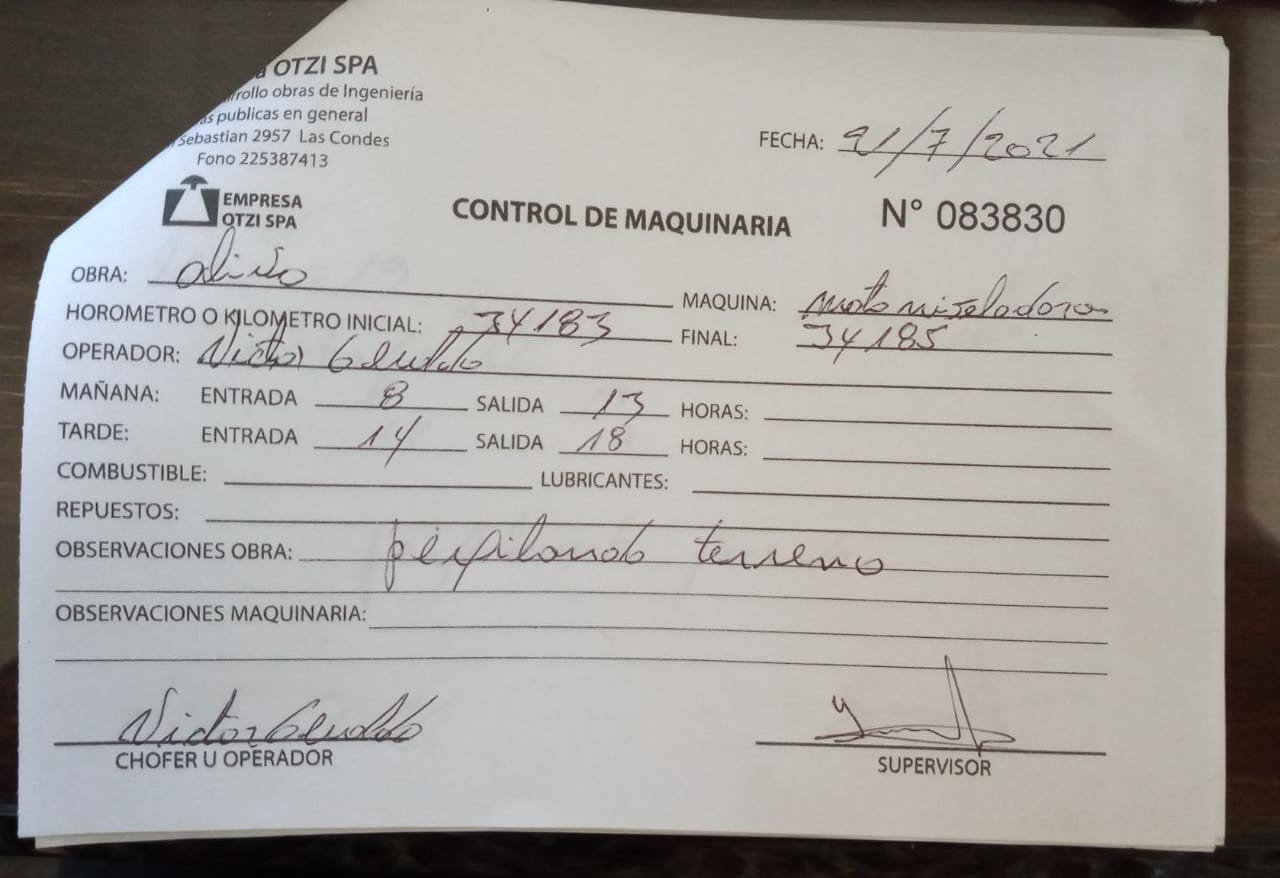 OTZI SPA
rollo obras de Ingeniería
as publicas en general
Sebastian 2957 Las Condes
Fono 225387413
FECHA: 21/7/2021
EMPRESA
OTZI SPA
CONTROL DE MAQUINARIA
N° 083830
OBRA:
MAQUINA: motoniveladora
HOROMETRO O KILOMETRO INICIAL: 34183 FINAL: 34185
OPERADOR: Victor
MAÑANA: ENTRADA 8 SALIDA 13 HORAS:
TARDE: ENTRADA 14 SALIDA 18 HORAS:
COMBUSTIBLE: LUBRICANTES:
REPUESTOS:
OBSERVACIONES OBRA: perfilando terreno
OBSERVACIONES MAQUINARIA:
Victor
CHOFER U OPERADOR
SUPERVISOR